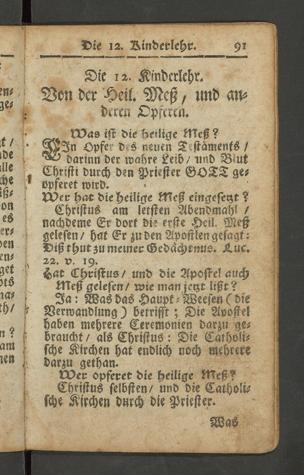 Die 12. Kinderlehr. 91
Die 12. Kinderlehr.
Von der Heil. Meß, und an-
deren Opferen.
Was ist die heilige Meß?
EIn Opfer des neuen Testaments/
darinn der wahre Leib/ und Blut
Christi durch den Priester GOTT ge-
opferet wird.
Wer hat die heilige Meß eingesetzt?
Christus am letsten Abendmahl/
nachdeme Er dort die erste Heil. Meß
gelesen/ hat Er zu den Apostlen gesagt:
Diß thut zu meiner Gedächtnus. Luc.
22. v. 19.
Hat Christus/ und die Apostel auch
Meß gelesen/ wie man jetzt lißt?
Ja: Was das Haupt-Weesen (die
Verwandlung) betrifft; Die Apostel
haben mehrere Ceremonien darzu ge-
braucht/ als Christus: Die Catholi-
sche Kirchen hat endlich noch mehrere
darzu gethan.
Wer opferet die heilige Meß?
Christus selbsten/ und die Catholi-
sche Kirchen durch die Priester.
Was